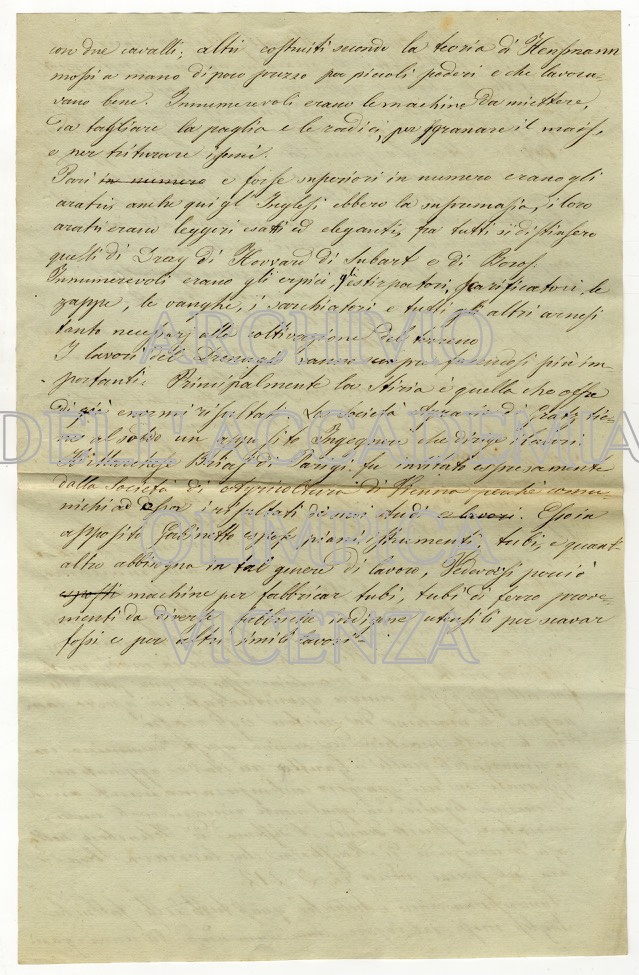 con due cavalli; altri costruiti secondo la teoria di Hensmann
mossi a mano di poco prezzo pei piccoli poderi e che lavora-
vano bene. Innumerevoli erano le machine da mietere,
da tagliare la paglia e le radici, per sgranare il mais,
e per triturare i semi.
Pari in numero e forse superiori in numero erano gli
aratri; anche qui gl' Inglesi ebbero la supremazia, i loro
aratri erano leggeri esatti ed eleganti, fra tutti si distinsero
quelli di Dray di Hovvard di e di
Innumerevoli erano gli erpici, gli estirpatori, scarificatori, le
zappe, le vanghe, i sarchiatori e tutti gli altri arnesi
tanto necessarj alla coltivazione del terreno
I lavori del Drenaggi vanno sempre facendosi più im-
portanti. Principalmente la Stiria è quella che offre
di più enormi risultati. La Società Agraria di Gratz tie-
ne al soldo un apposito Ingegnere che dirige i lavori.
di Parigi fu invitato espressamente
dalla Società di Agricoltura di Vienna perchè comu-
nichi ad Essa i risultati di suoi studi e lavori. Esso in
apposito Gabinetto espose piani, istrumenti, tubi, e quant'
altro abbisogna in tal genere di lavoro, Vedevasi perciò
esposti machine per fabbricar tubi, tubi di ferro prove-
nienti da diverse fabbriche indigene utensili per scavar
fossi e per altri simili lavori.
ARCHIVIO
DELL'ACCADEMIA
OLIMPICA
VICENZA